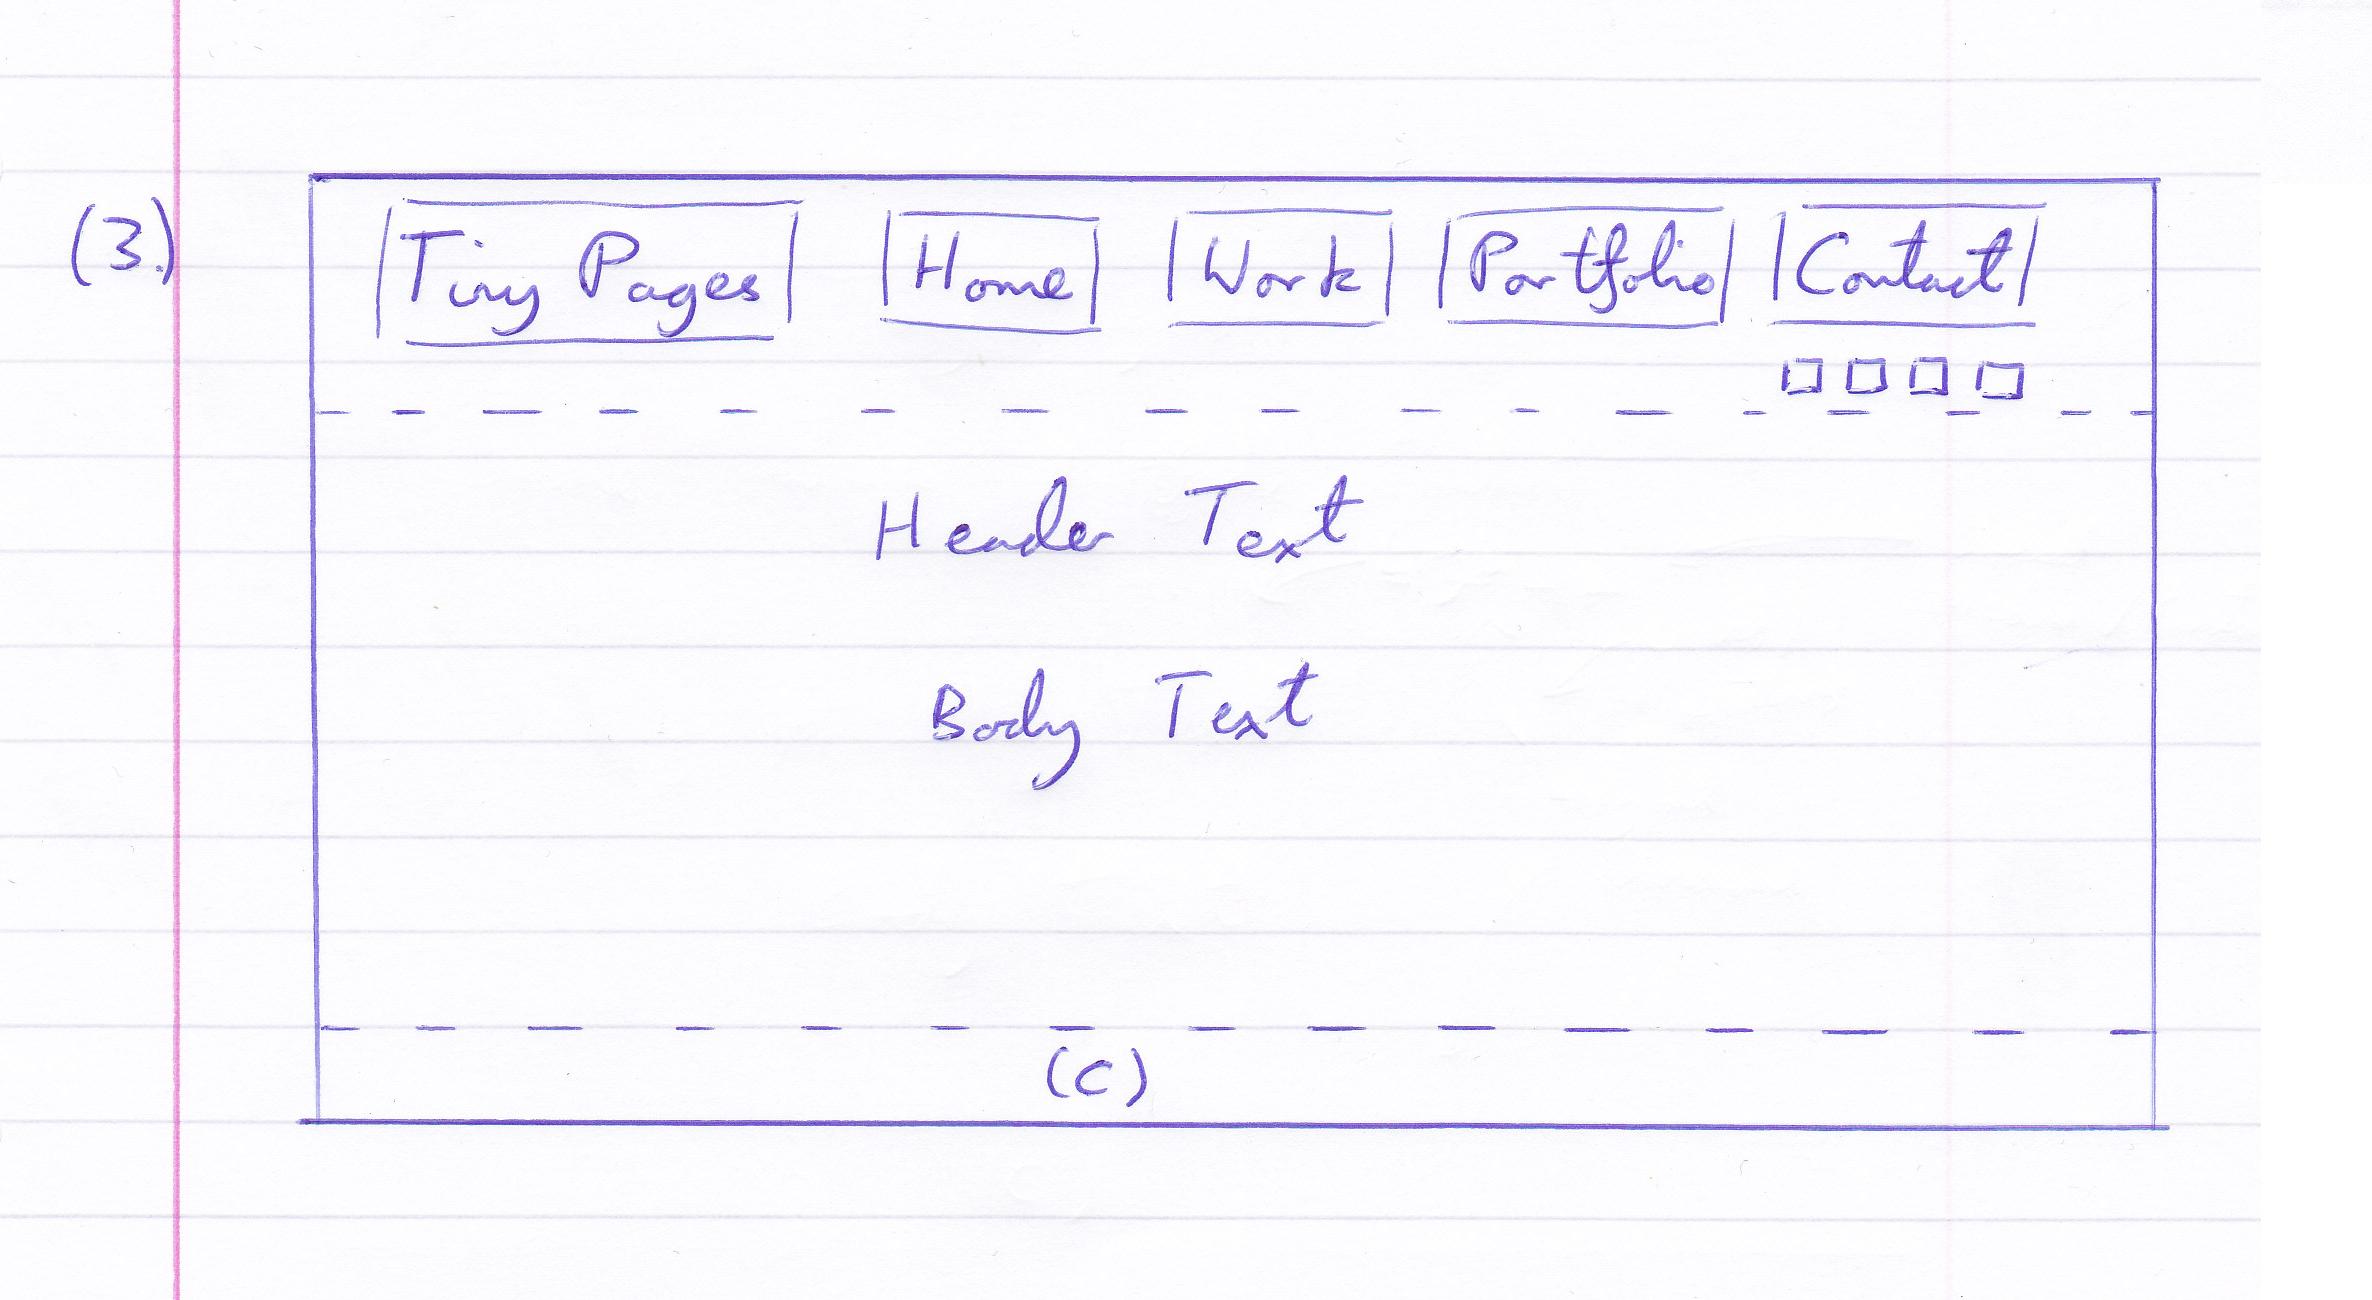 (3.)
Tiny Pages Home Work Portfolio Contact
Header Text
Body Text
(c)